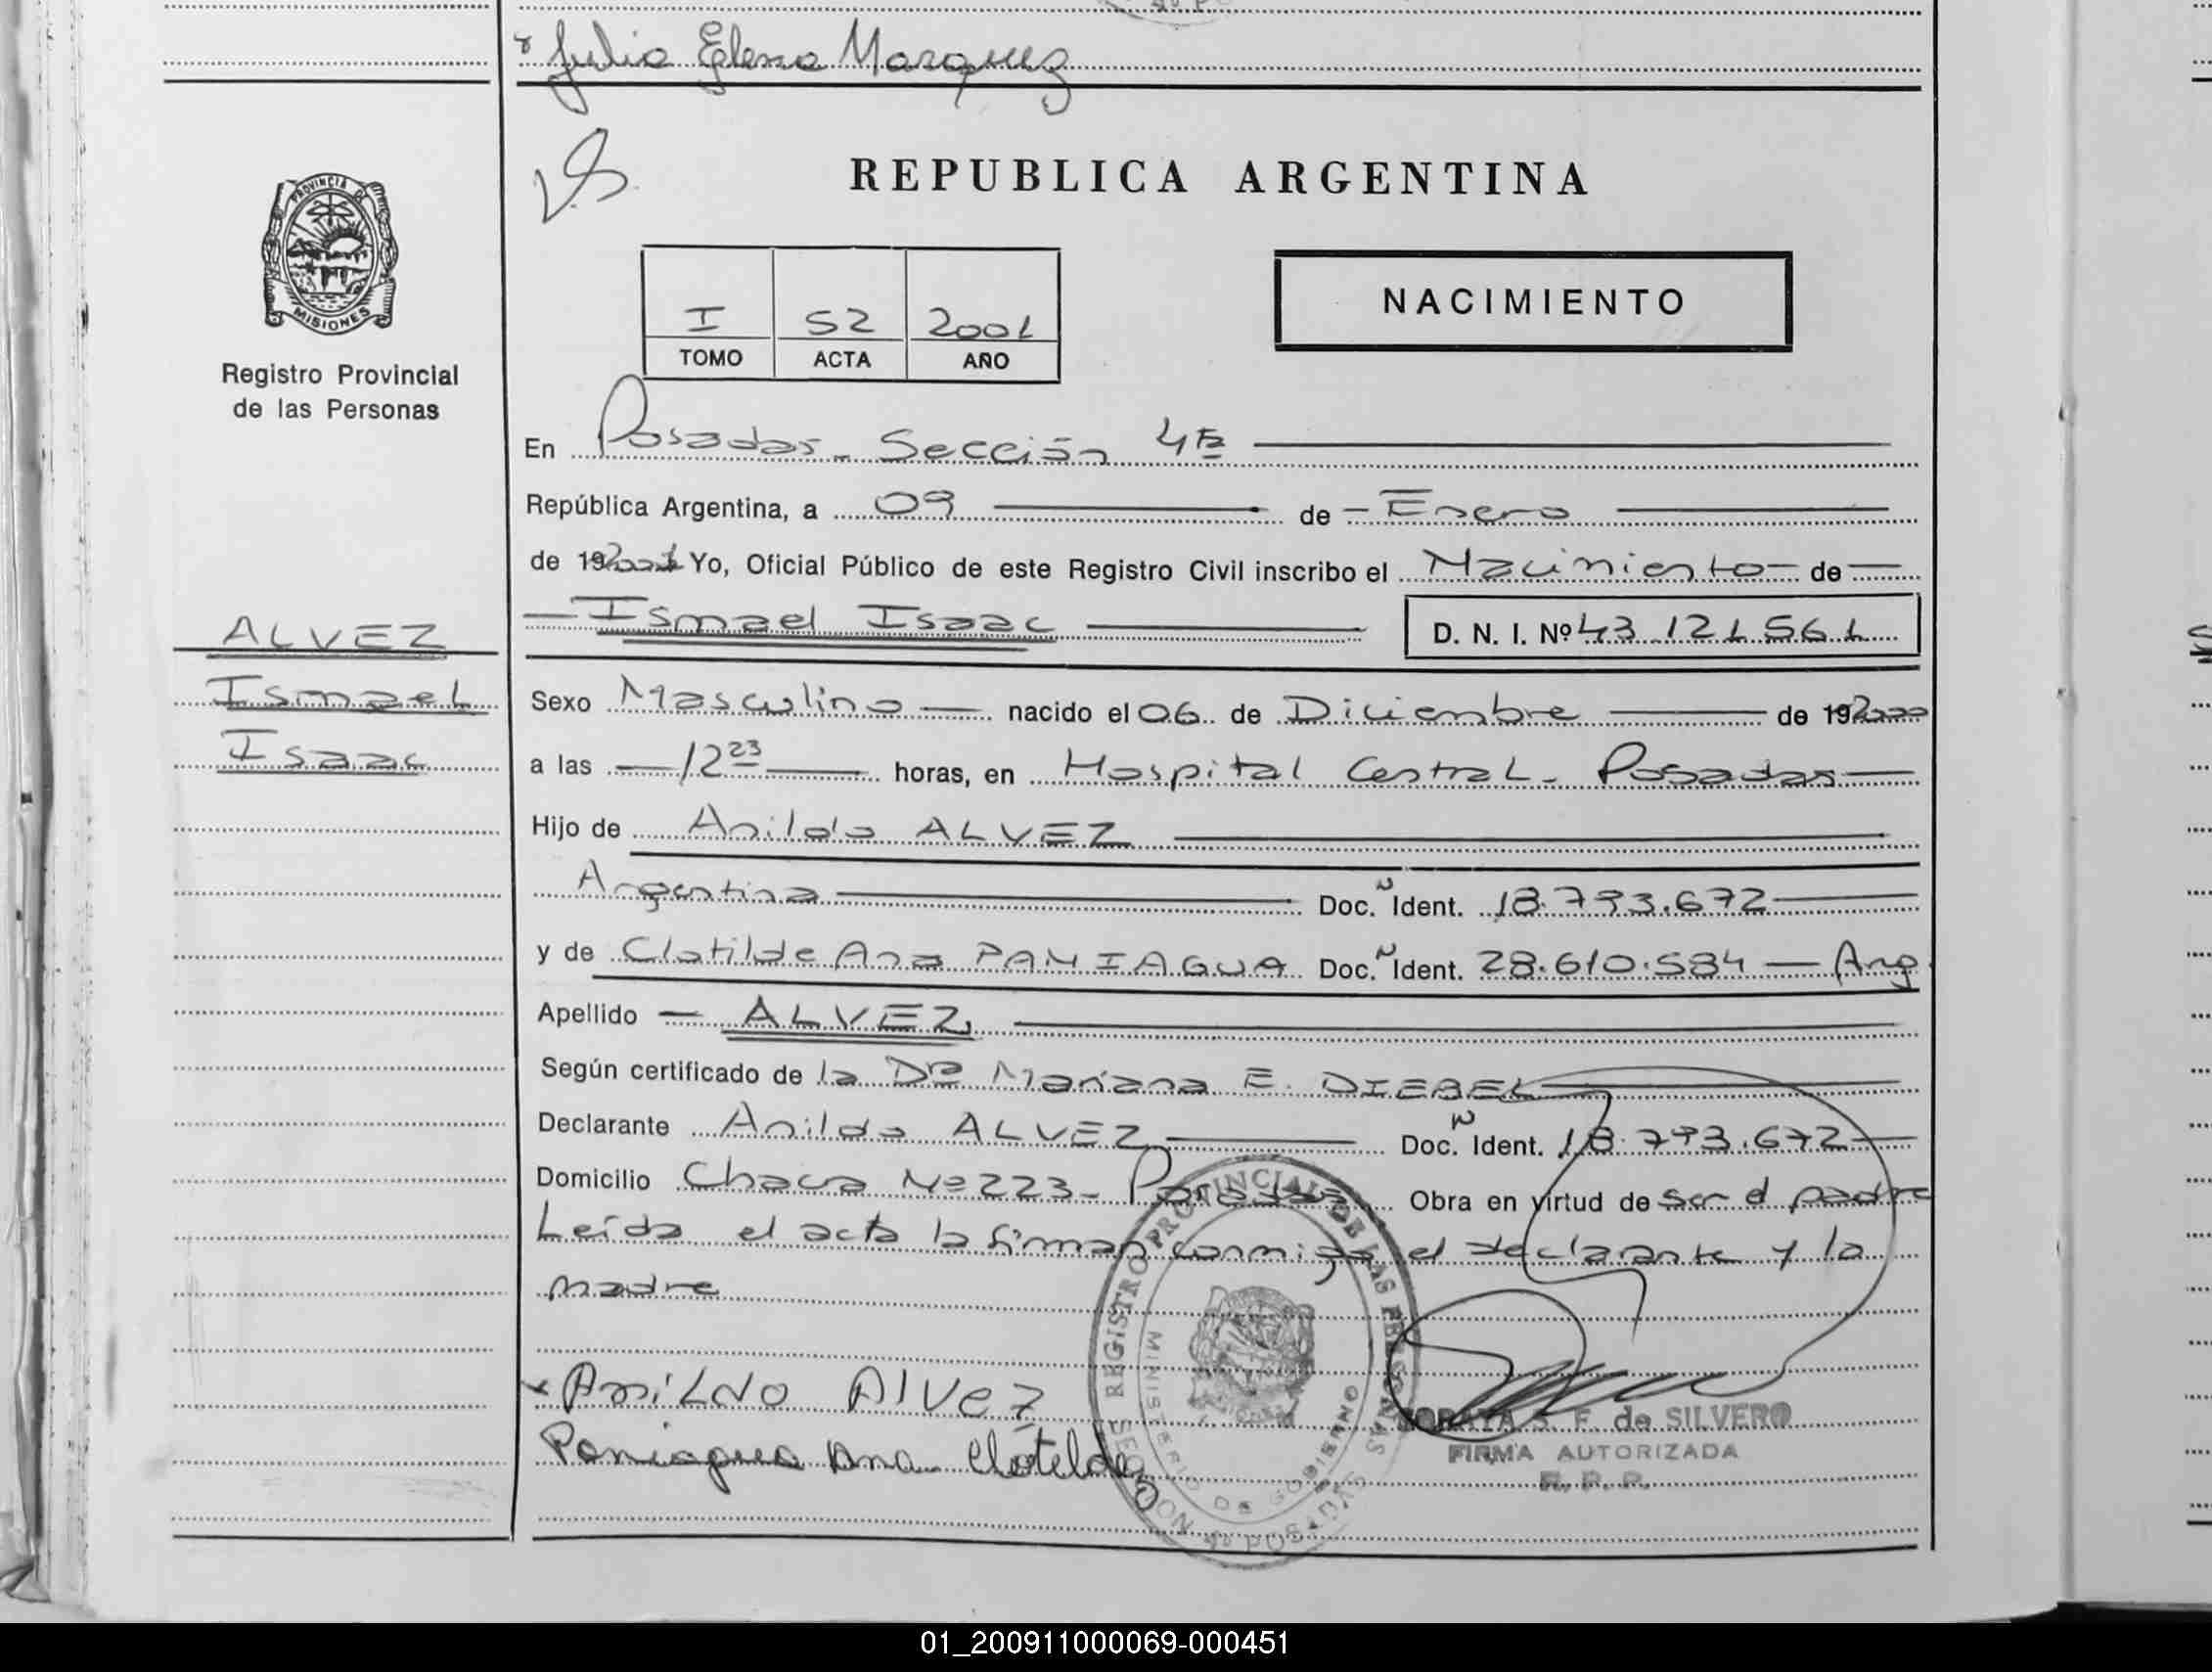 Julia Elena Marquez
REPUBLICA ARGENTINA
PROVINCIA DE
MISIONES
Registro Provincial
de las Personas
I 52 2001
TOMO ACTA AÑO
NACIMIENTO
En Posadas - Sección 4ta
República Argentina, a 09 de Enero
de 192001 Yo, Oficial Público de este Registro Civil inscribo el Nacimiento de
Ismael Isaac D. N. I. Nº 43.121.561
ALVEZ
Ismael
Isaac
Sexo Masculino nacido el 06 de Diciembre de 192000
a las 12 23 horas, en Hospital Central - Posadas
Hijo de Anildo ALVEZ
Argentina Doc. Ident. 18.793.672
y de Clotilde Ana PANIAGUA Doc. Ident. 28.610.584 - Arg.
Apellido ALVEZ
Según certificado de la Dra Mariana E. DIEBEL
Declarante Anildo ALVEZ Doc. Ident. 18.793.672
Domicilio Chacra Nº 223 - Posadas Obra en virtud de ser el padre
Leída el acta la firman conmigo el declarante y la
madre
Anildo Alvez
Paniagua Ana Clotilde
REGISTRO PROVINCIAL DE LAS PERSONAS
MINISTERIO DE GOBIERNO
SECCION 4º POSADAS
SORAYA S. F. de SILVERO
FIRMA AUTORIZADA
R. P. P.
01_200911000069-000451